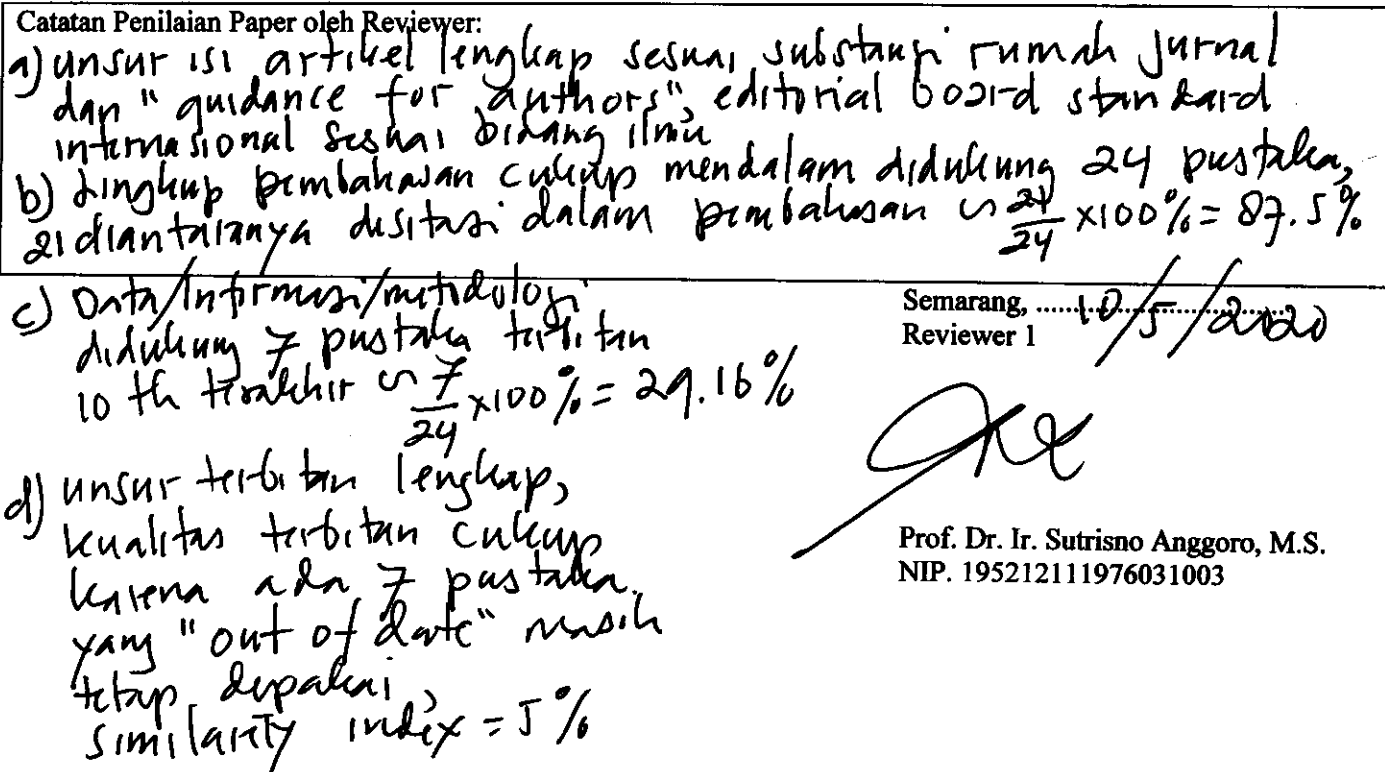 Catatan Penilaian Paper oleh Reviewer:
a) unsur isi artikel lengkap sesuai substansi rumah jurnal
dan "guidance for authors", editorial board standard
internasional sesuai bidang ilmu
b) Lingkup pembahasan cukup mendalam didukung 24 pustaka,
21 diantaranya disitasi dalam pembahasan ∽ 21/24 x100% = 87.5%
c) Data/Informasi/metodologi
didukung 7 pustaka terbitan
10 th terakhir ∽ 7/24 x100% = 29.16%
d) unsur terbitan lengkap,
kualitas terbitan cukup
karena ada 7 pustaka
yang "out of date" masih
tetap dipakai,
similarity index = 5%
Semarang, ......10/5/2020
Reviewer 1
Prof. Dr. Ir. Sutrisno Anggoro, M.S.
NIP. 195212111976031003